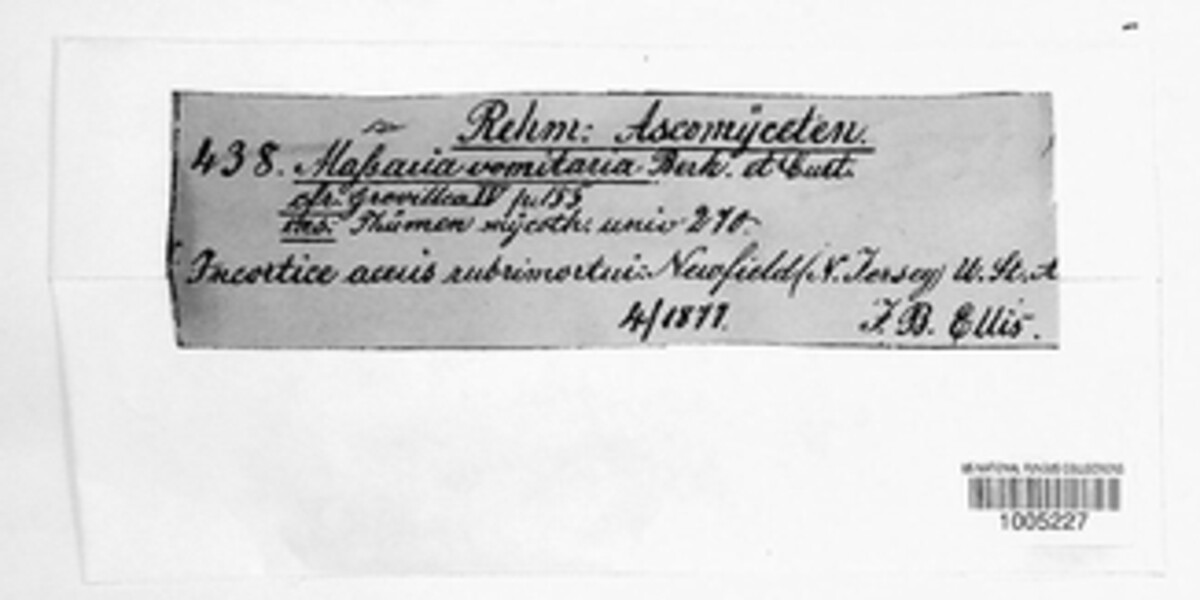 Rehm: Ascomÿceten.
438. Maßaria vomitaria Berk. et Curt.
cfr. Grevillea IV p. 155
exs. Thümen mÿcoth. univ 270.
In cortice aceris rubri mortui: Newfield (N. Jersey) U. St. A
4/1877. J. B. Ellis.
US NATIONAL FUNGUS COLLECTIONS
1005227